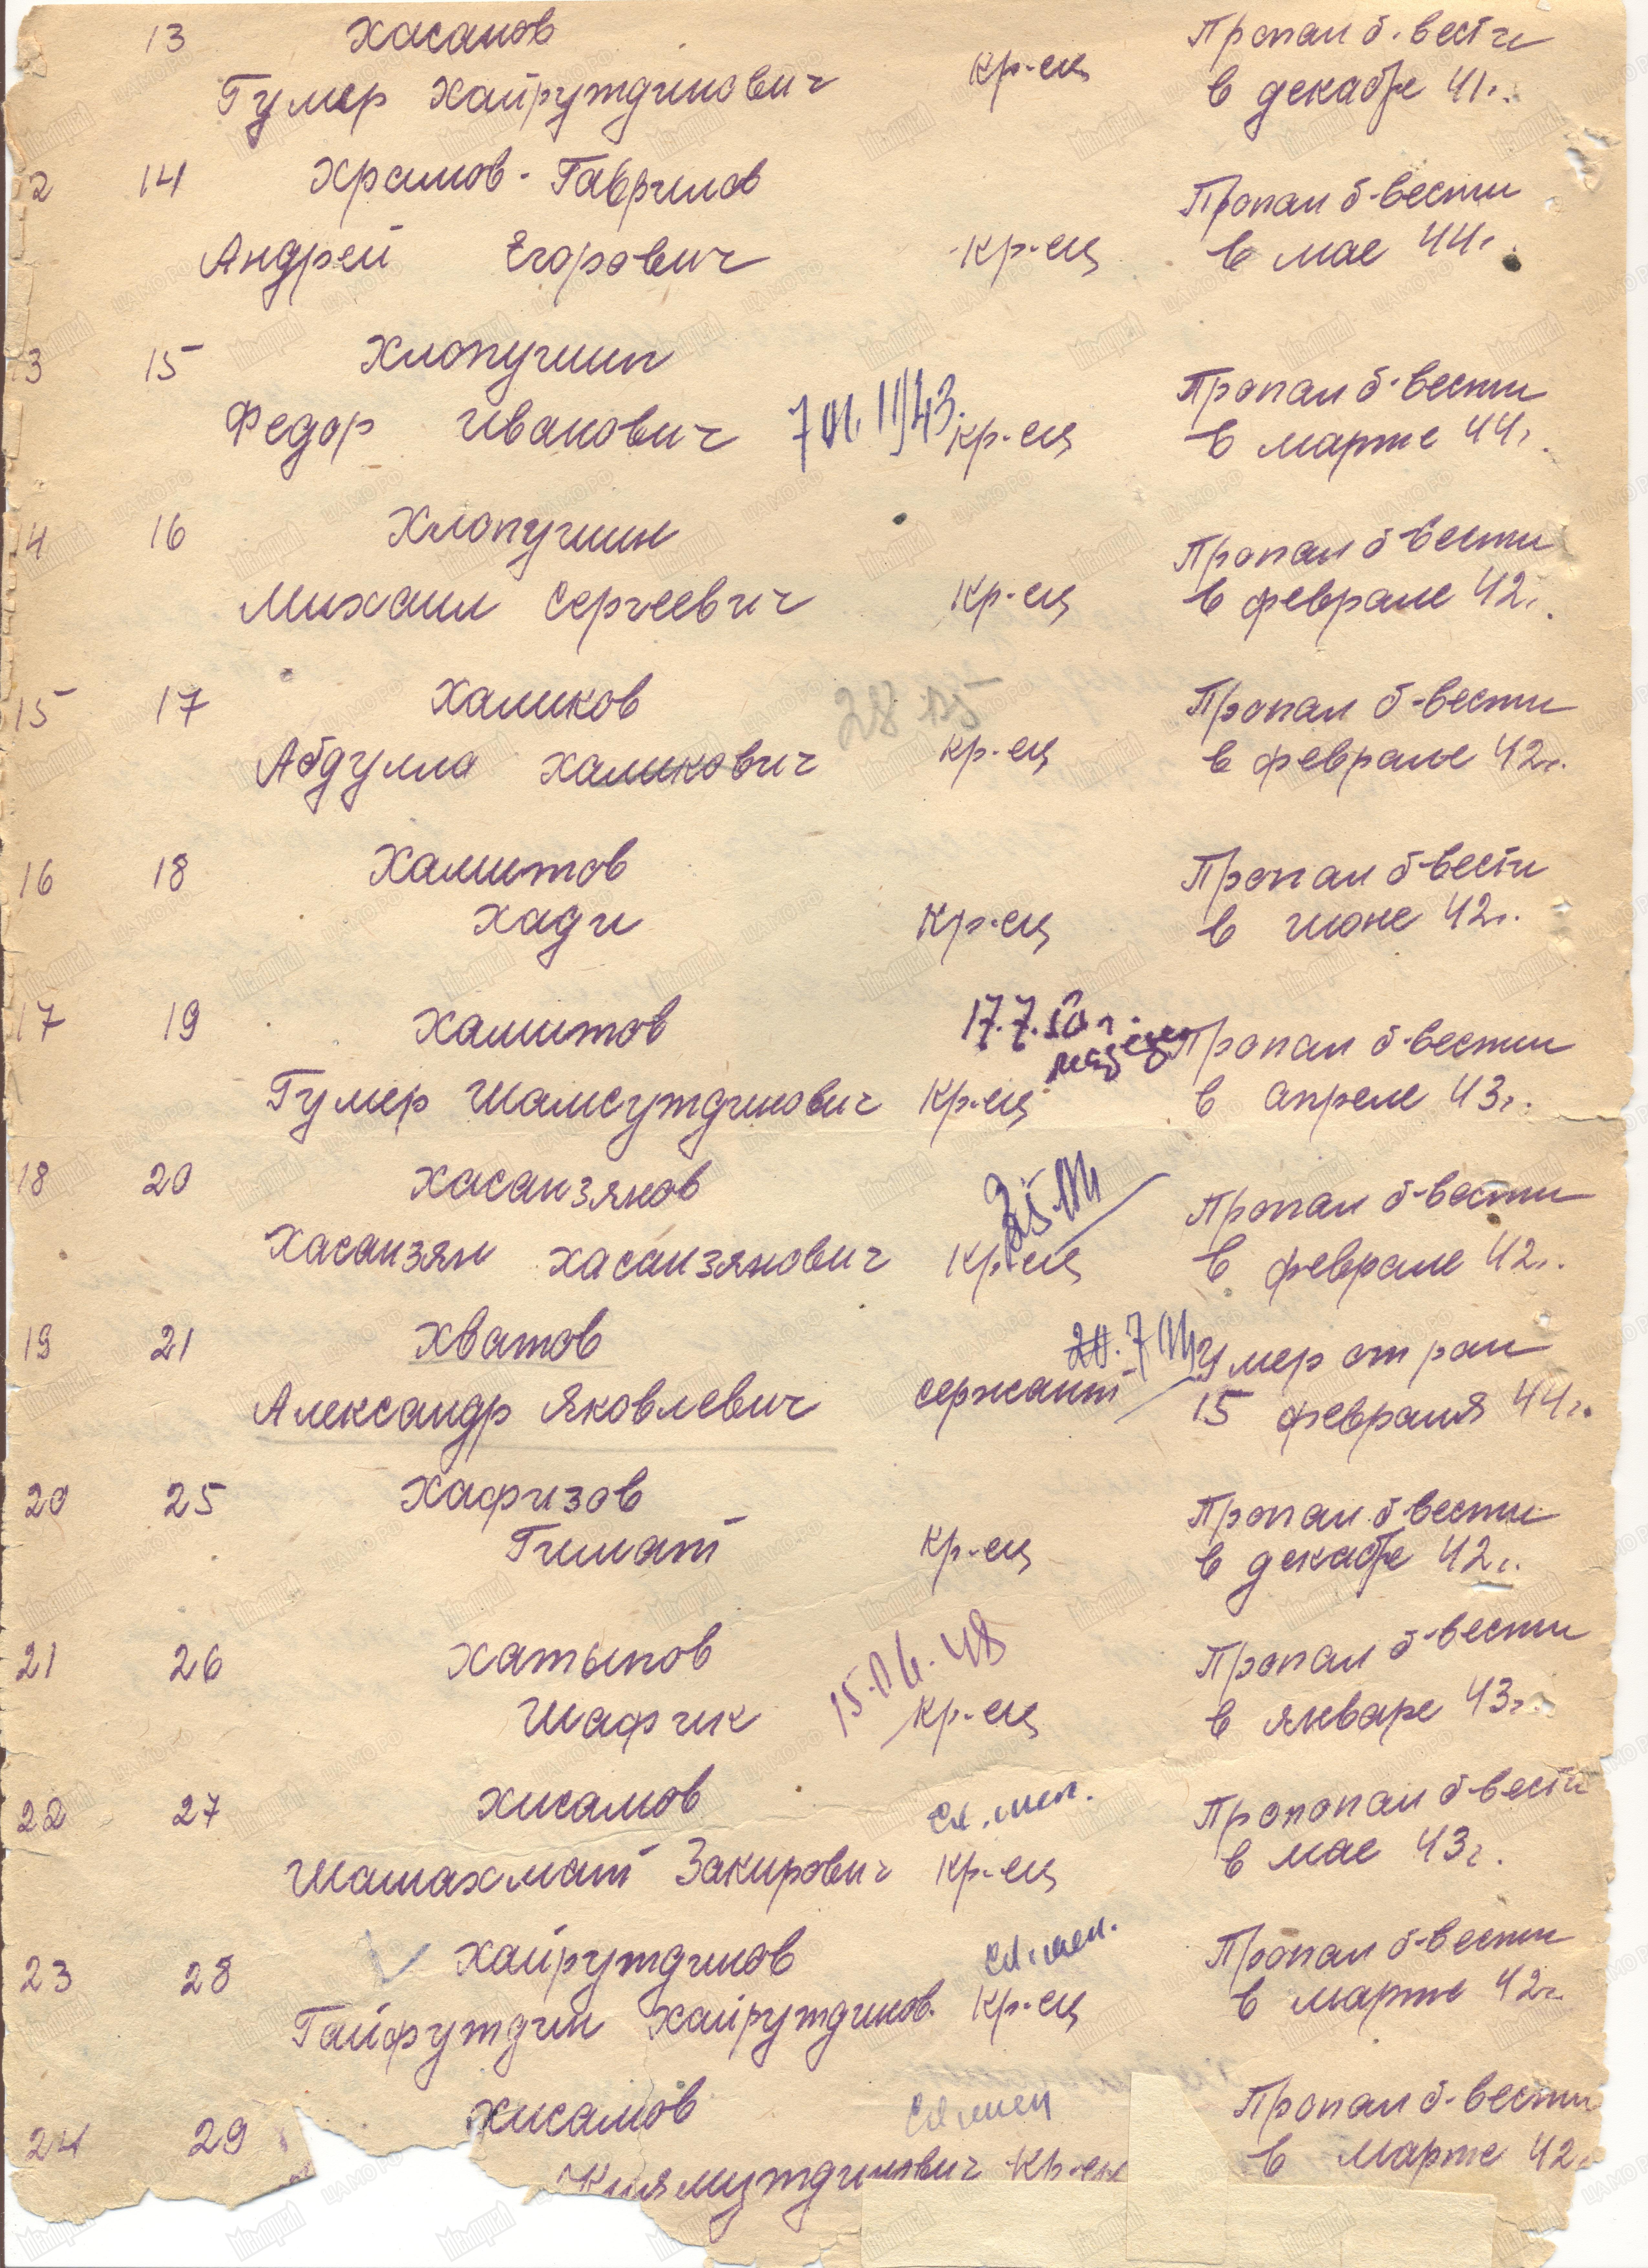 13 Хасанов Пропал б. вести
Гумер Хайрутдинович кр-ец в декабре 41г.
2 14 Храмов-Гаврилов Пропал б-вести
Андрей Егорович кр-ец в мае 44г.
13 15 Хлопушин Пропал б-вести
Федор Иванович 7 01. 1943. кр-ец в марте 44г.
14 16 Хлопушин Пропал б вести
Михаил Сергеевич кр-ец в феврале 42г.
15 17 Халиков 28 Пропал б-вести
Абдулла Халикович кр-ец в феврале 42г.
16 18 Хамитов Пропал б-вести
Хади кр-ец в июне 42г.
17 19 Хамитов 17.7. Пропал б-вести
Гумер Шамсутдинович кр-ец в апреле 43г.
18 20 Хасанзянов Пропал б-вести
Хасанзян Хасанзянович кр-ец в феврале 42г.
19 21 Хватов 20.7 Умер от ран
Александр Яковлевич сержант 15 февраля 44г.
20 25 Хафизов Пропал б-вести
Гимат кр-ец в декабре 42г.
21 26 Хатыпов 15.06.48 Пропал б-вести
Шафик кр-ец в январе 43г.
22 27 Хисамов Пропопал б-вести
Шамахмат Закирович кр-ец в мае 43г.
23 28 Хайрутдинов Пропал б-вести
Гайфутдин Хайрутдинов. кр-ец в марте 42г.
24 29 Хисамов Пропал б-вести
Киямутдинович кр-ец в марте 42г.